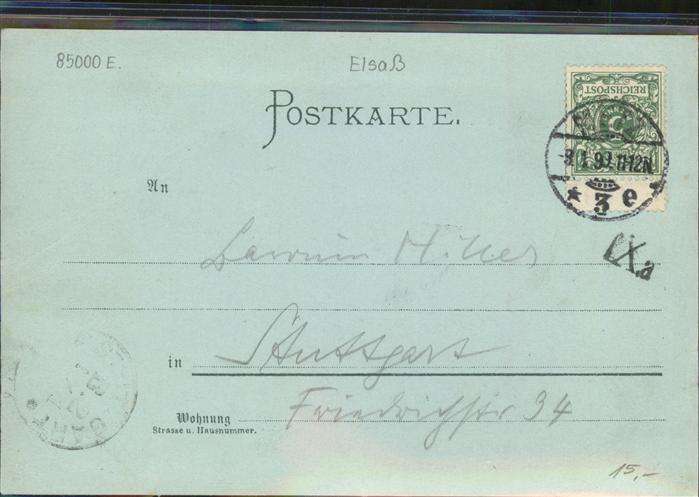 85000 E.
Elsaß
REICHSPOST
POSTKARTE.
-8.1.99.11-12N.
* 3 e
An
IXa
in Stuttgart
Wohnung Friedrichstr 34
Strasse u. Hausnummer.
15,-